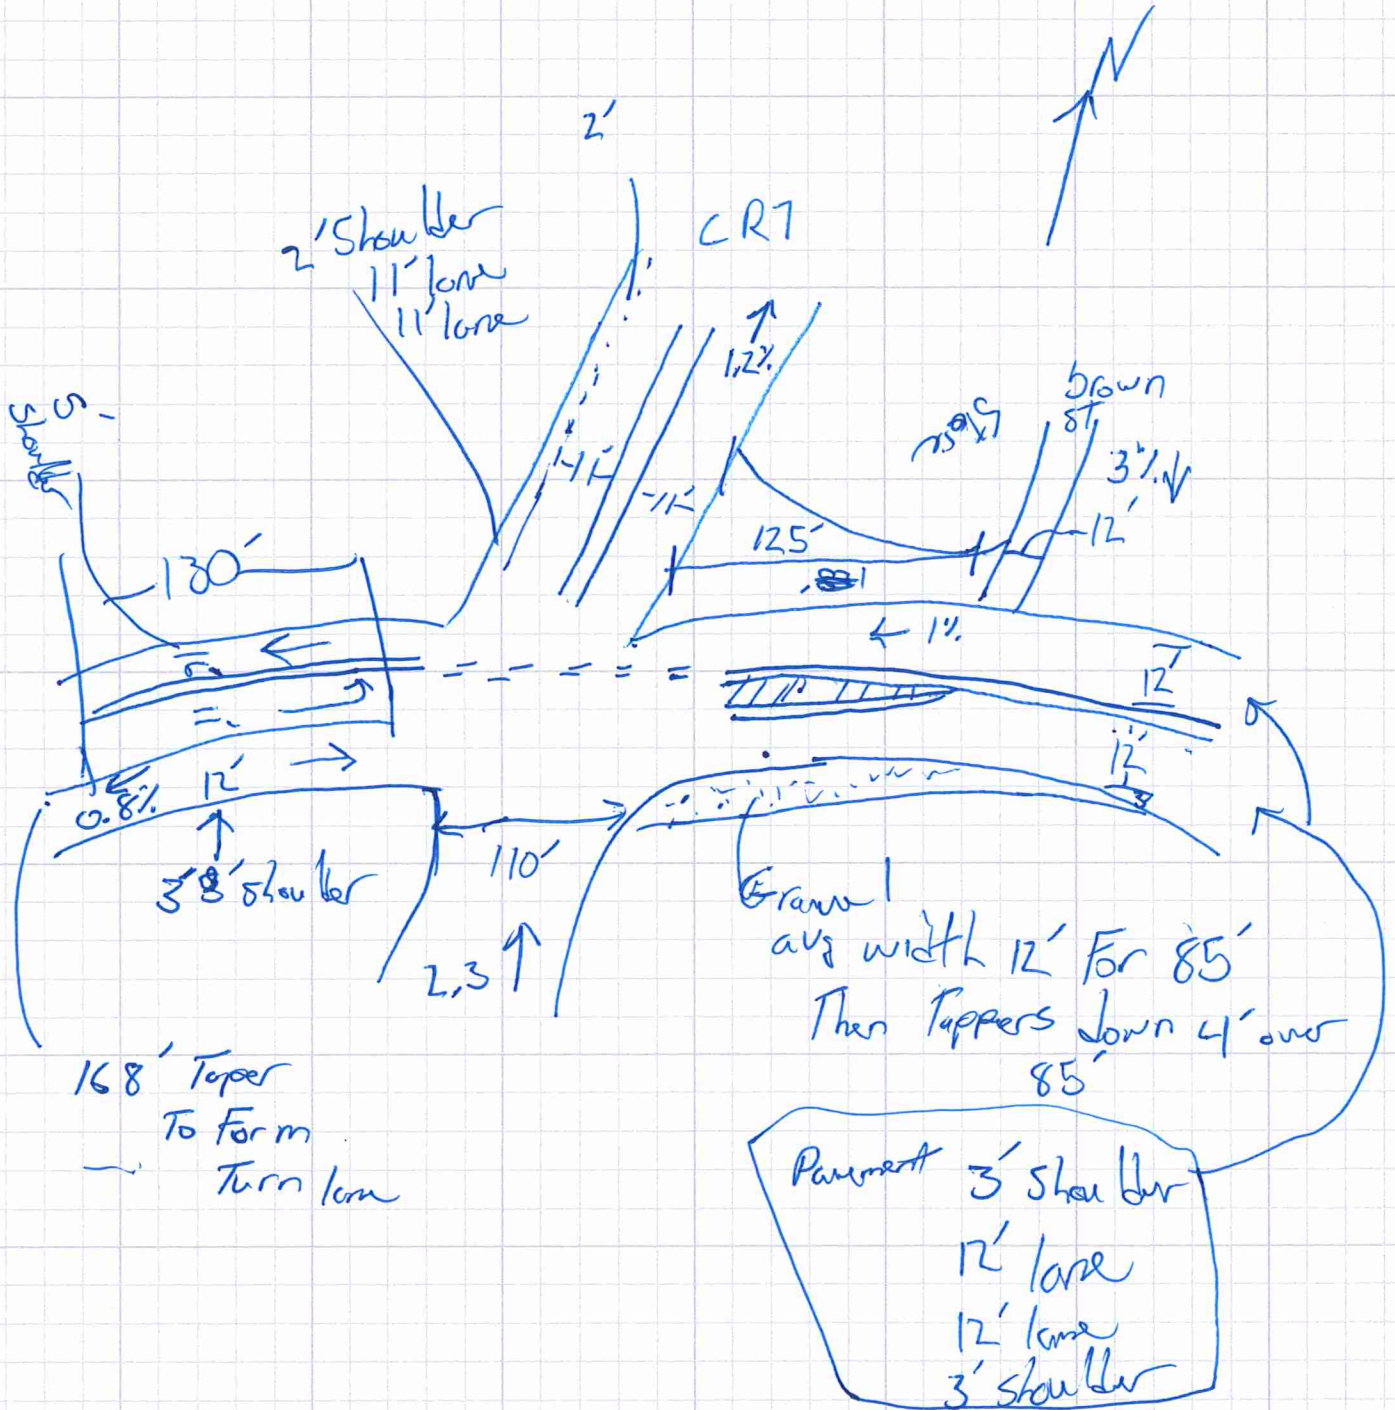 N
2'
CR7
2' Shoulder
11' lane
11' lane
1.2%
brown
ST.
3%
12'
5'
Shoulder
130'
11'
11'
125'
1%
12'
12'
3
0.8%
12'
3' shoulder
110'
2,3
Gravel
avg width 12' For 85'
Then Tappers down 4' over
85'
168' Taper
To Form
Turn lane
Pavement 3' Shoulder
12' lane
12' lane
3' shoulder